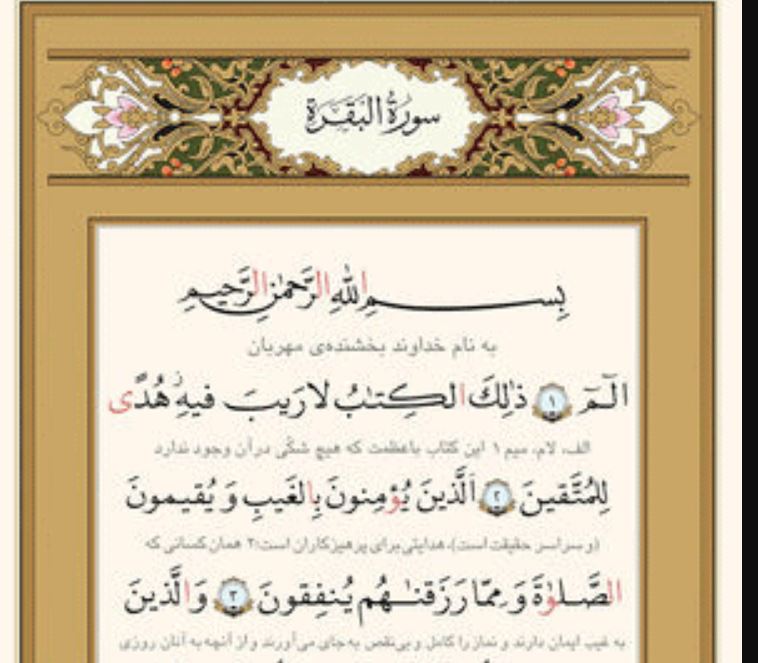 سورة البقرة
بِسمِ اللهِ الرَّحمٰنِ الرَّحیمِ
به نام خداوند بخشنده‌ی مهربان
الٓمٓ ١ ذٰلِكَ الكِتٰبُ لارَيبَ فيهِ هُدًى
الف، لام، میم ۱ این کتاب باعظمت که هیچ شکّی در آن وجود ندارد
لِلمُتَّقينَ ٢ اَلَّذينَ يُؤمِنونَ بِالغَيبِ وَ يُقيمونَ
(و سراسر حقیقت است)، هدایتی برای پرهیزکاران است؛۲ همان کسانی که
الصَّلوٰةَ وَ مِمّا رَزَقنٰهُم يُنفِقونَ ٣ وَ الَّذينَ
به غیب ایمان دارند و نماز را کامل و بی‌نقص به‌جای می‌آورند و از آنچه به آنان روزی